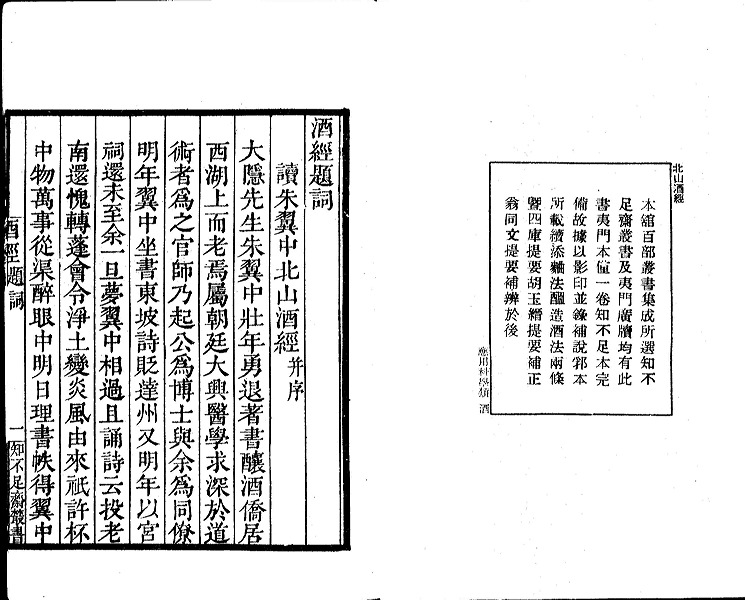 北山酒經
本舘百部叢書集成所選知不
足齋叢書及夷門廣牘均有此
書夷門本僅一卷知不足本完
備故據以影印並錄補說郛本
所載續添麯法醞造酒法兩條
暨四庫提要胡玉縉提要補正
翁同文提要補辨於後
應用科學類 酒
酒經題詞
讀朱翼中北山酒經并序
大隱先生朱翼中壯年勇退著書釀酒僑居
西湖上而老焉屬朝廷大興醫學求深於道
術者爲之官師乃起公爲博士與余爲同僚
明年翼中坐書東坡詩貶達州又明年以宮
祠還未至余一旦夢翼中相過且誦詩云投老
南還愧轉蓬會令淨土變炎風由來祇許杯
中物萬事從渠醉眼中明日理書帙得翼中
酒經題詞
一
知不足齋叢書